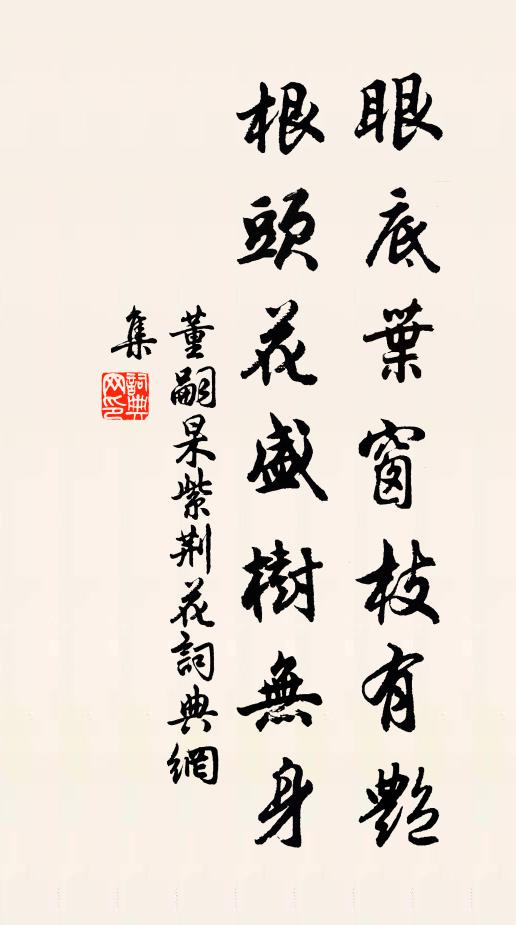 眼底葉窗枝有艷
根頭花盛樹無身
董嗣杲紫荆花詞典網
集
詞典
网印